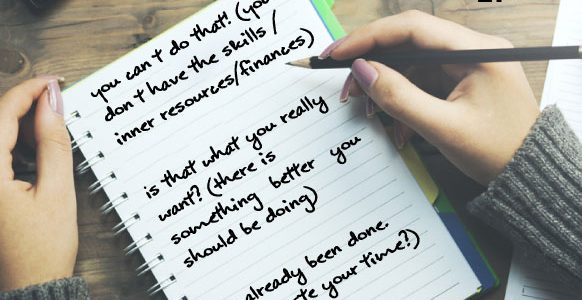 you can't do that! (you
don't have the skills /
inner resources/finances)
is that what you really
want? (there is
something better you
should be doing)
already been done.
your time?)